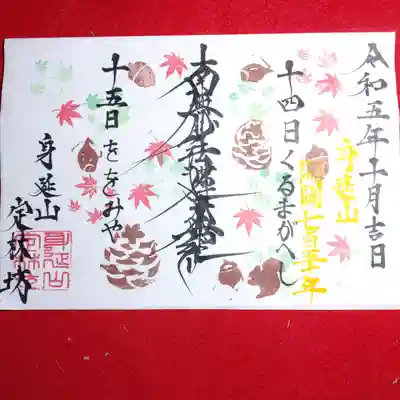 令和五年十一月吉日
身延山
開闢七百五十年
十四日くるまがへし
南無妙法蓮華経
十五日ををみや
身延山
定林坊
身延山
定林坊